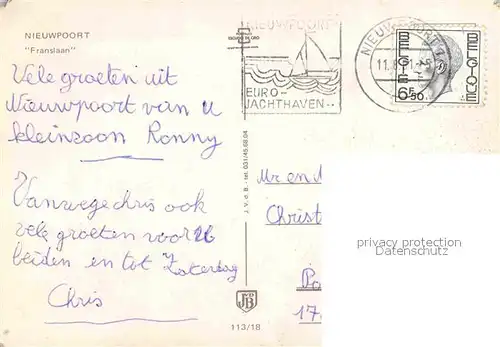 NIEUWPOORT
"Franslaan"
Vele groeten uit
Nieuwpoort van u
kleinzoon Ronny
Vanwege chris ook
vele groeten voor U
beiden en tot Zaterdag
Chris
113/18
J. V. d. B. - tel. 031/45.68.94
JB
NIEUWPOORT
EURO-
JACHTHAVEN
NIEUWPOORT
11.
BELGIE
BELGIQUE
6F50
Mr en
Christ
Po
17.
privacy protection
Datenschutz